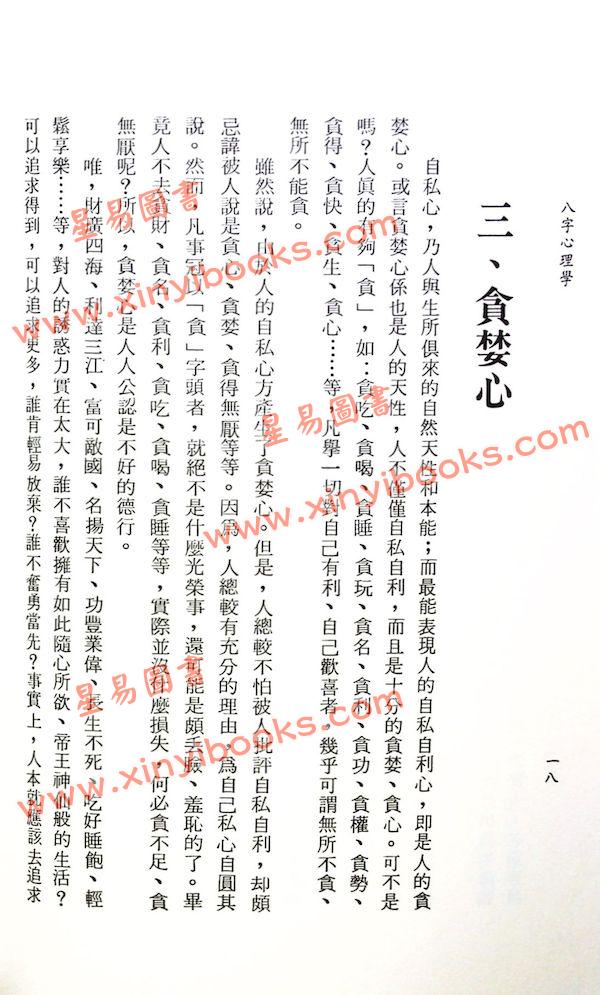 八字心理學
一八
三、貪婪心
自私心，乃人與生所俱來的自然天性和本能；而最能表現人的自私自利心，即是人的貪
婪心。或言貪婪心係也是人的天性，人不僅僅自私自利，而且是十分的貪婪、貪心。可不是
嗎？人眞的有夠「貪」，如：貪吃、貪喝、貪睡、貪玩、貪名、貪利、貪功、貪權、貪勢、
貪得、貪快、貪生、貪心……等，凡舉一切對自己有利、自己歡喜者，幾乎可謂無所不貪、
無所不能貪。
雖然說，由於人的自私心方產生了貪婪心。但是，人總較不怕被人批評自私自利，却頗
忌諱被人說是貪心、貪婪、貪得無厭等等。因爲，人總較有充分的理由，爲自己私心自圓其
說。然而，凡事冠以「貪」字頭者，就絕不是什麼光榮事，還可能是頗丟臉、羞恥的了。畢
竟人不去貪財、貪名、貪利、貪吃、貪喝、貪睡等等，實際並沒什麼損失，何必貪不足、貪
無厭呢？所以，貪婪心是人人公認是不好的德行。
唯，財廣四海、利達三江、富可敵國、名揚天下、功豐業偉、長生不死、吃好睡飽、輕
鬆享樂……等，對人的誘惑力實在太大，誰不喜歡擁有如此隨心所欲、帝王神仙般的生活？
可以追求得到，可以追求更多，誰肯輕易放棄？誰不奮勇當先？事實上，人本就應該去追求
星易圖書
www.xinyibooks.com
星易圖書
www.xinyibooks.com
星易圖書
www.xinyibooks.com